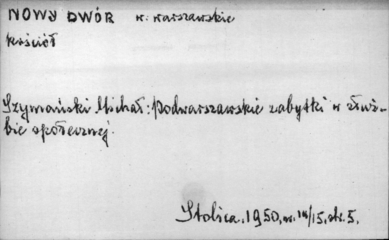 NOWY DWÓR w. warszawskie
kościół
Szymański Michał: Podwarszawskie zabytki w służ-
bie społecznej.
Stolica, 1950, nr. 14/15, str. 5.